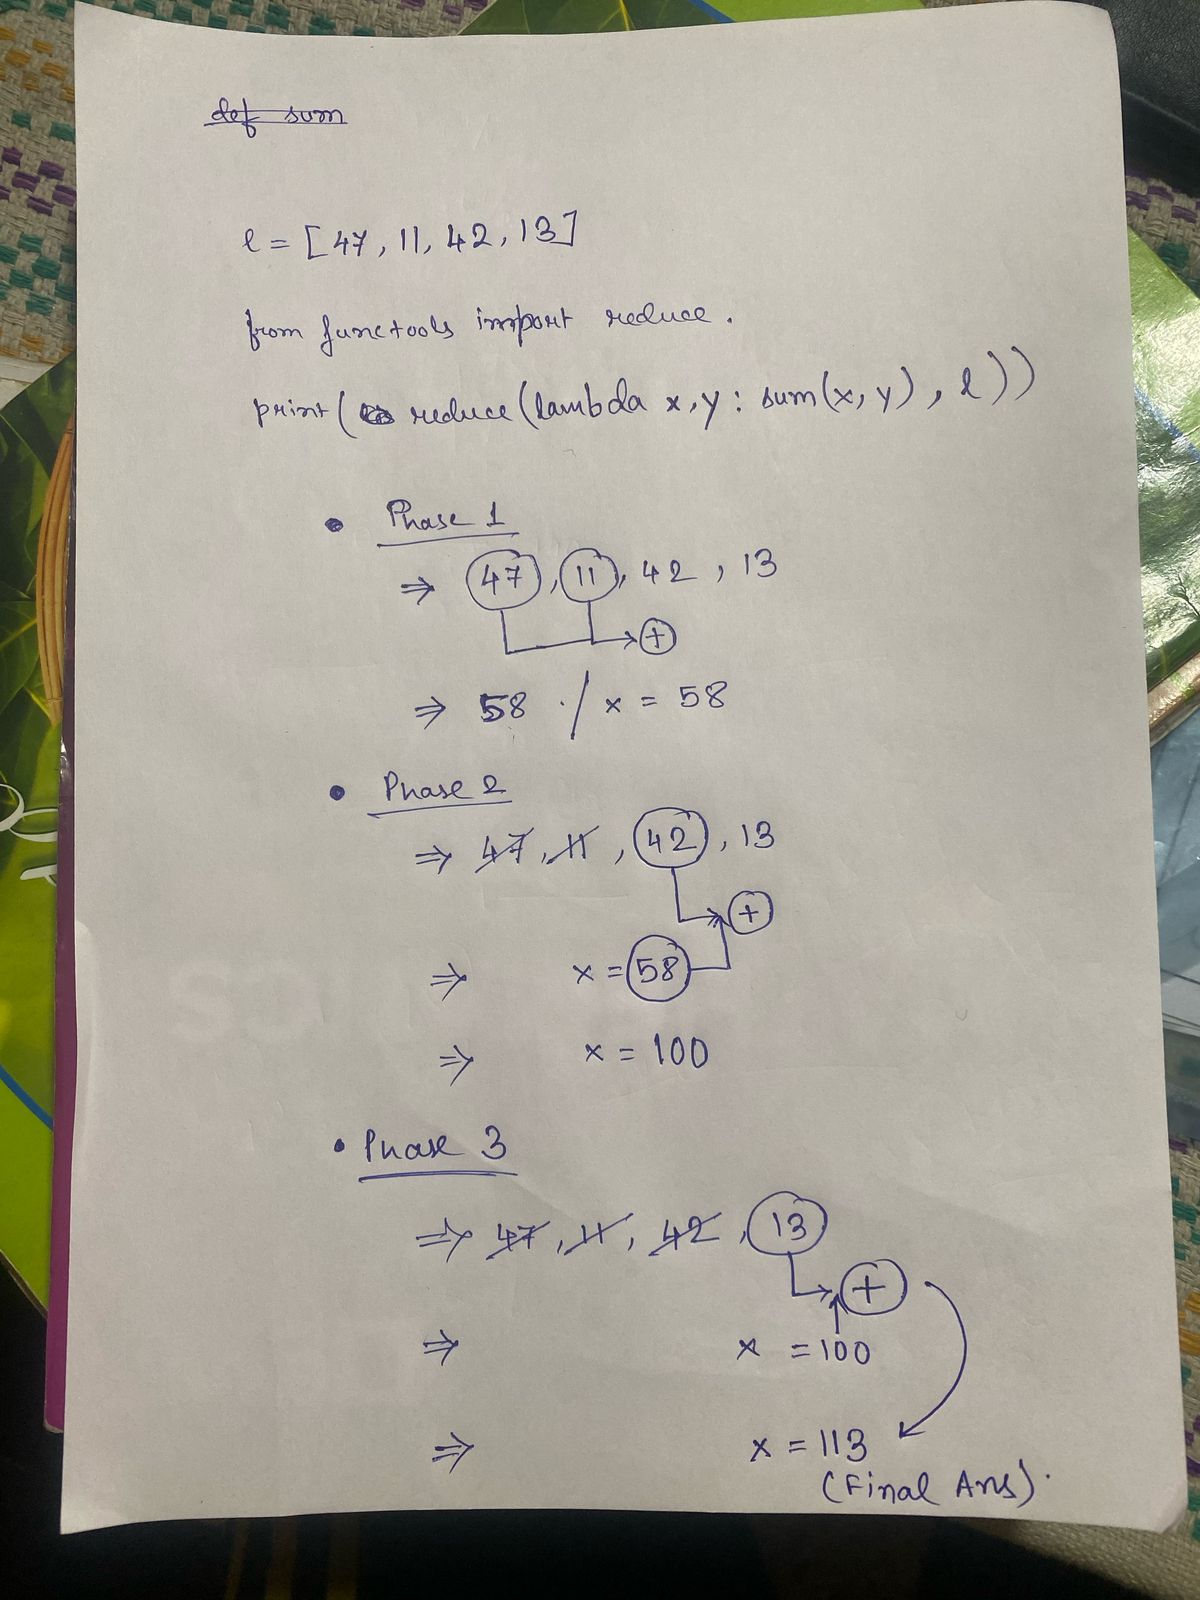 def sum
l = [47, 11, 42, 13]
from functools import reduce.
print( reduce(lambda x,y : sum(x, y) , l))
• Phase 1
⇒ 47, 11, 42, 13
+
⇒ 58 ./ x = 58
• Phase 2
⇒ 47, 11, 42, 13
+
⇒ x = 58
⇒ x = 100
• Phase 3
⇒ 47, 11, 42, 13
+
⇒ x = 100
⇒ x = 113
(Final Ans).